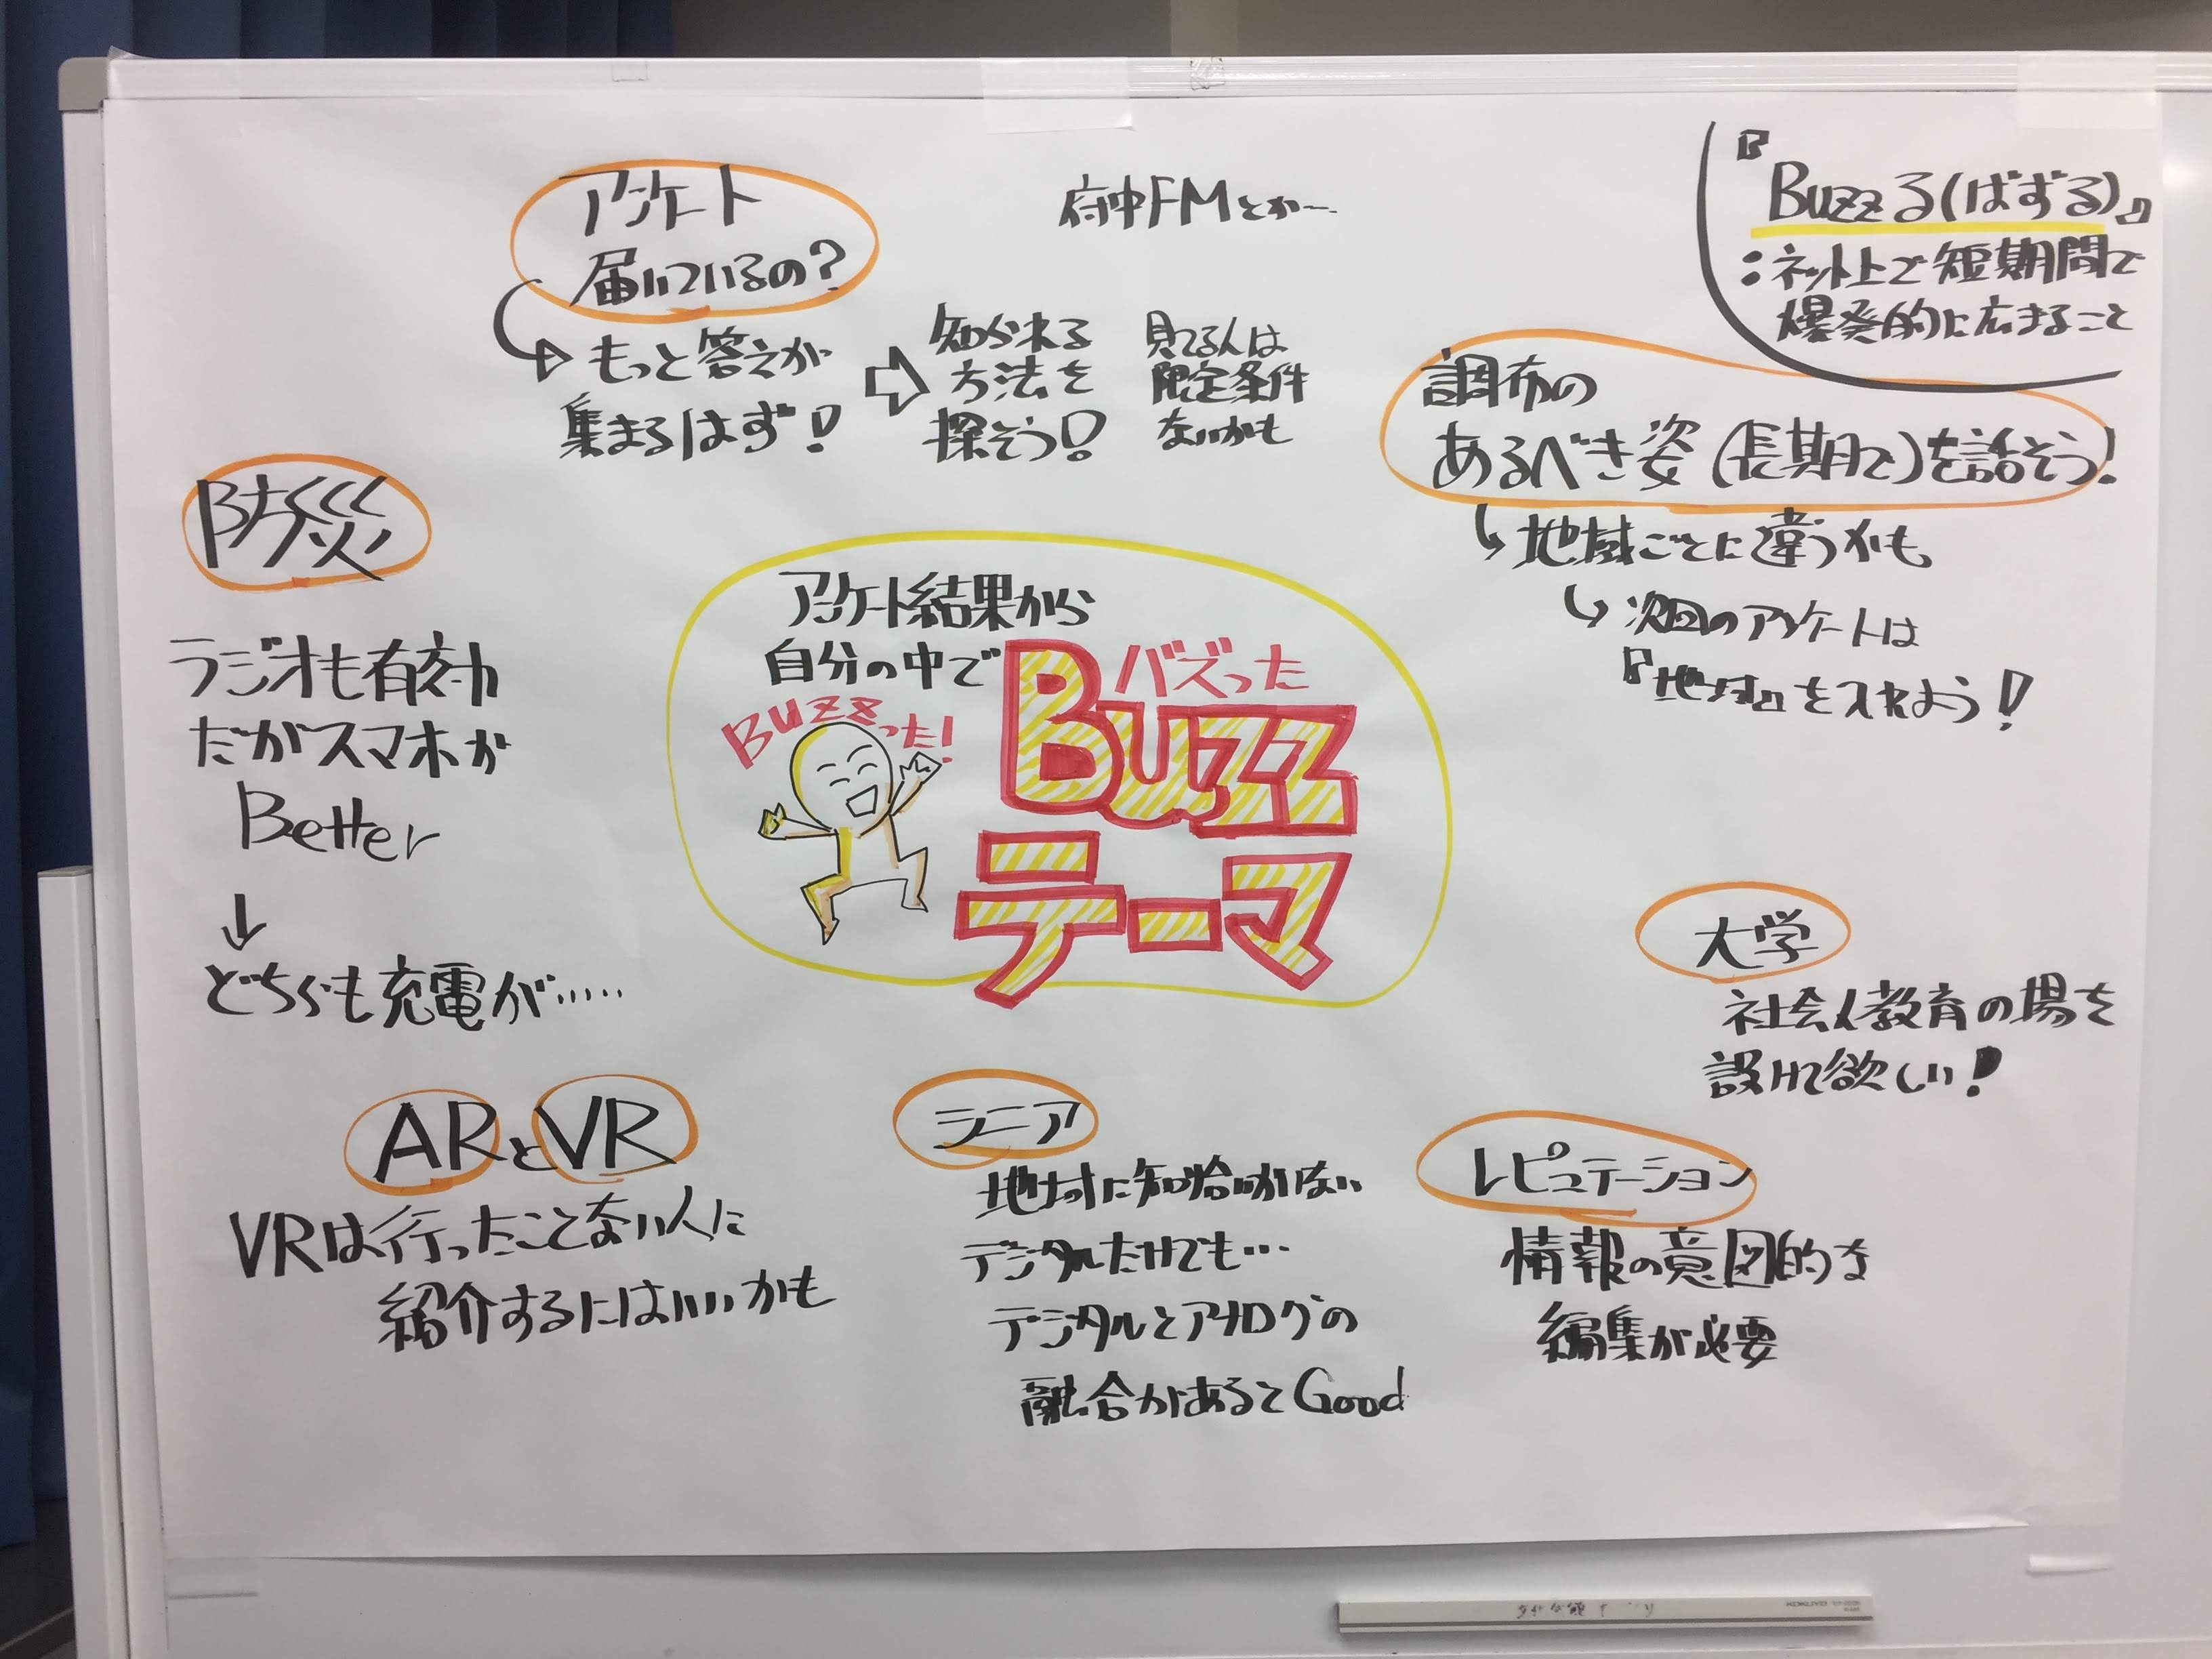 アンケート
届いているの?
もっと答えが
集まるはず!
府中FMとか〜
知られる
方法を
探そう!
見てる人は
限定条件
ないかも
『Buzzる(ばずる)』
:ネット上で短期間で
爆発的に広まること
調布の
あるべき姿(長期で)を話そう!
地域ごとに違うかも
次回のアンケートは
『地域』を入れよう!
防災
ラジオも有効
だがスマホが
Better
どちらも充電が……
アンケート結果から
自分の中で
バズった
Buzz
テーマ
Buzzった!
大学
社会人教育の場を
設けて欲しい!
ARとVR
VRは行ったことない人に
紹介するにはいいかも
シニア
地域に知合いがいない
デジタルだけでも…
デジタルとアナログの
融合があるとGood
レピュテーション
情報の意図的な
編集が必要